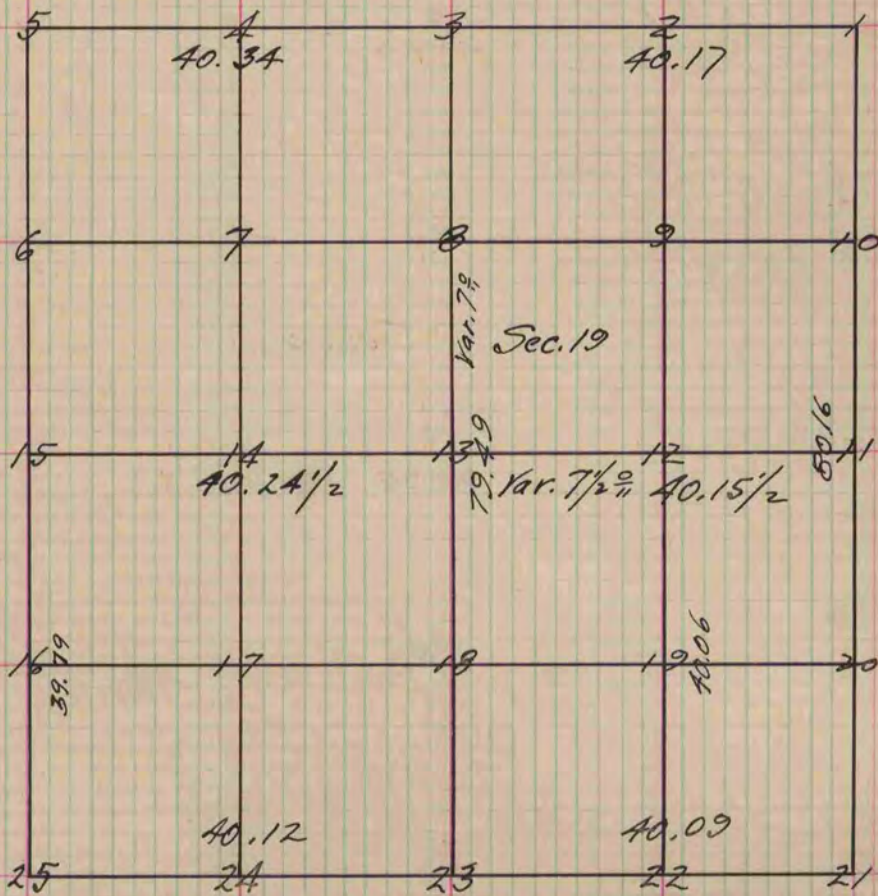 5 4 3 2 1
40.34 40.17
6 7 8 9 10
Var. 7°
Sec. 19
15 14 13 12 11
79.49
80.16
40.24 1/2 Var. 7 1/2° 40.15 1/2
16 17 18 19 20
39.79
40.06
40.12 40.09
25 24 23 22 21